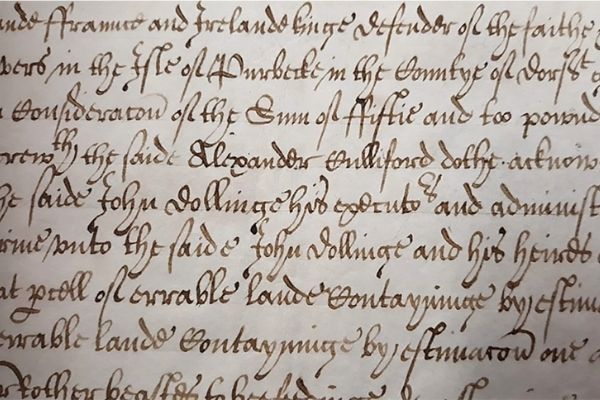 ande ffraunce and Irelande kinge defender of the faithe
vers in the Isle of Purbecke in the Countye of Dorst
Consideracon of the Sum of ffiftie and too pownd
rewth the saide Alexander Culliford dothe acknow
he saide John Dollinge his executors and administ
rime vnto the saide John Dollinge and his heires
at pcell of errable lande Contayninge by estima
errable lande Contayninge by estimacon one
Rother beastes to be